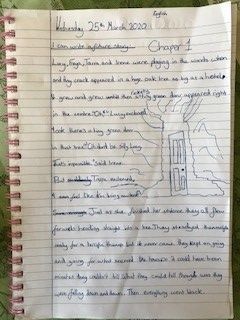 English
Wednesday 25th March 2020
I can write a future story.
Chaper 1
Lucy, Freya, Tiana and Irene were playing in the woods when
and tiny crack appeared in a huge oak tree as big as a hushel,
It grew and grew until then a tiny green door appeared right
in the centre. "Oh!" Lucy exclaimed
"Look there's a tiny green door
in that tree!" "Oh don't be silly Lucy
That's impossible" said Irene.
But exclaimed,
feel like I'm being watched"
Just as she finished her sentence they all flew
forwards heading straight into a tree. They all
ready for a tumple thump but it never came. They kept on going
and going for what seemed like hours it could have been
minutes they couldn't tell what they could tell though was they
were falling down and down. Then everything went black.